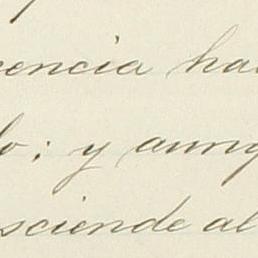 encia ha
o; y aunq
sciende al